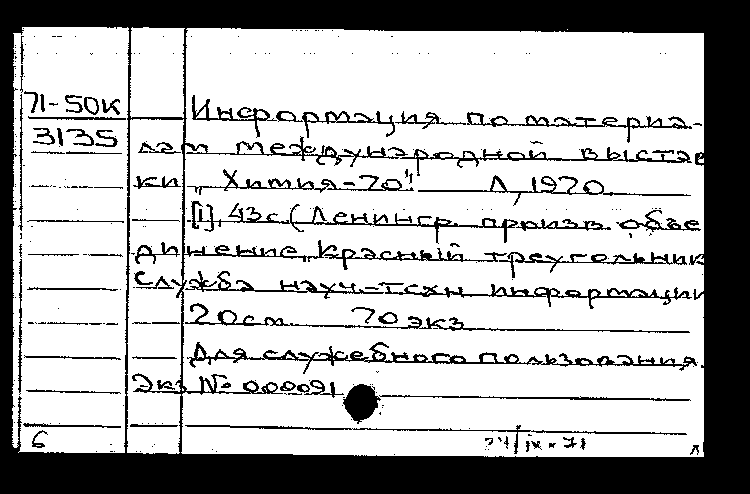 71-50к Информация по материа-
3135 лам международной выстав
ки „Химия-70". Л, 1970.
[1], 43с (Ленингр. произв. объе
динение „Красный треугольник
Служба науч.-техн информации
20см 70 экз
Для служебного пользования.
Экз № 000091
6 24/ix-71